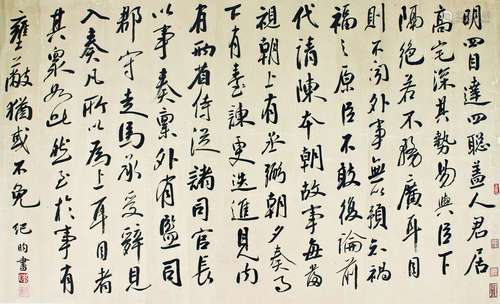 明四目達四聰蓋人君居
高宅深其勢易與臣下
隔絕若不務廣耳目
則不聞外事無以預知禍
福之原臣不敢復論前
代請陳本朝故事每當
祖朝上有丞弼朝夕奏事
下有臺諫更迭進見內
有兩省侍從諸司官長
以事奏稟外有監司
郡守走馬承受辭見
入奏凡所以為上耳目者
其衆如此然至於事有
壅蔽猶或不免 紀昀書